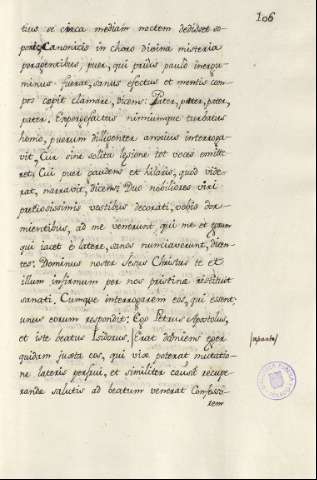 106
tius se circa mediam noctem dedisset so-
pori, Canonicis in choro divina misteria
peragentibus, puer, qui pridie paulo inergu-
minus fuerat, sanus efectus et mentis com-
pos cœpit clamare, dicens: Pater, pater, pater,
pater. Expergefactus nimiumque turbatus
homo, puerum diligenter anxius interroga-
vit, Cur sine solita lesione tot voces emitte-
ret. Cui puer gaudens et hilaris, quid vide-
rat, narravit, dicens: Duo nobiliores viri
pretiosissimis vestibus decorati, vobis dor-
mientibus, ad me venerunt, qui me et egrum
qui iacet è latere, sanos nuntiaverunt, dicen-
tes: Dominus noster Jesus Christus te et
illum infirmum per nos pristinæ restituit
sanati. Cumque interrogarem eos, qui essent,
unus eorum respondit: Ego Petrus Apostolus,
et iste beatus Isidorus. Erat dormiens eger
quidam juxta eos, qui vix poterat mutatio-
ne lateris perfrui, et similiter causâ recupe-
randæ salutis ad beatum venerat Confesso-
rem